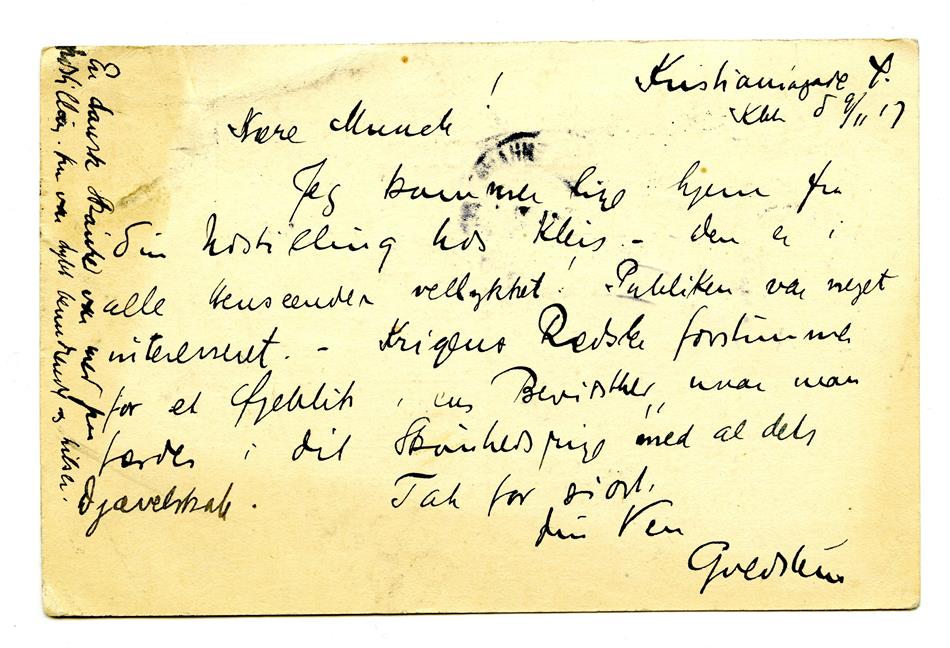 Kristianiagade 8.
Kbh d 9/11 17
Kære Munch!
Jeg kommer lige hjem fra
din Udstilling hos Kleis – den er i
alle Henseender vellykket! Publikum var meget
interesseret. – Krigens Rædsler forstummer
for et Øjeblik i ens Bevidsthed, naar man
færdes i dit Skønhedsrige med al dets
Djævelskab. Tak for sidst.
Din Ven
Goldstein
En dansk Maler var med paa
Udstilling. han var dybt beundrende og hilser.